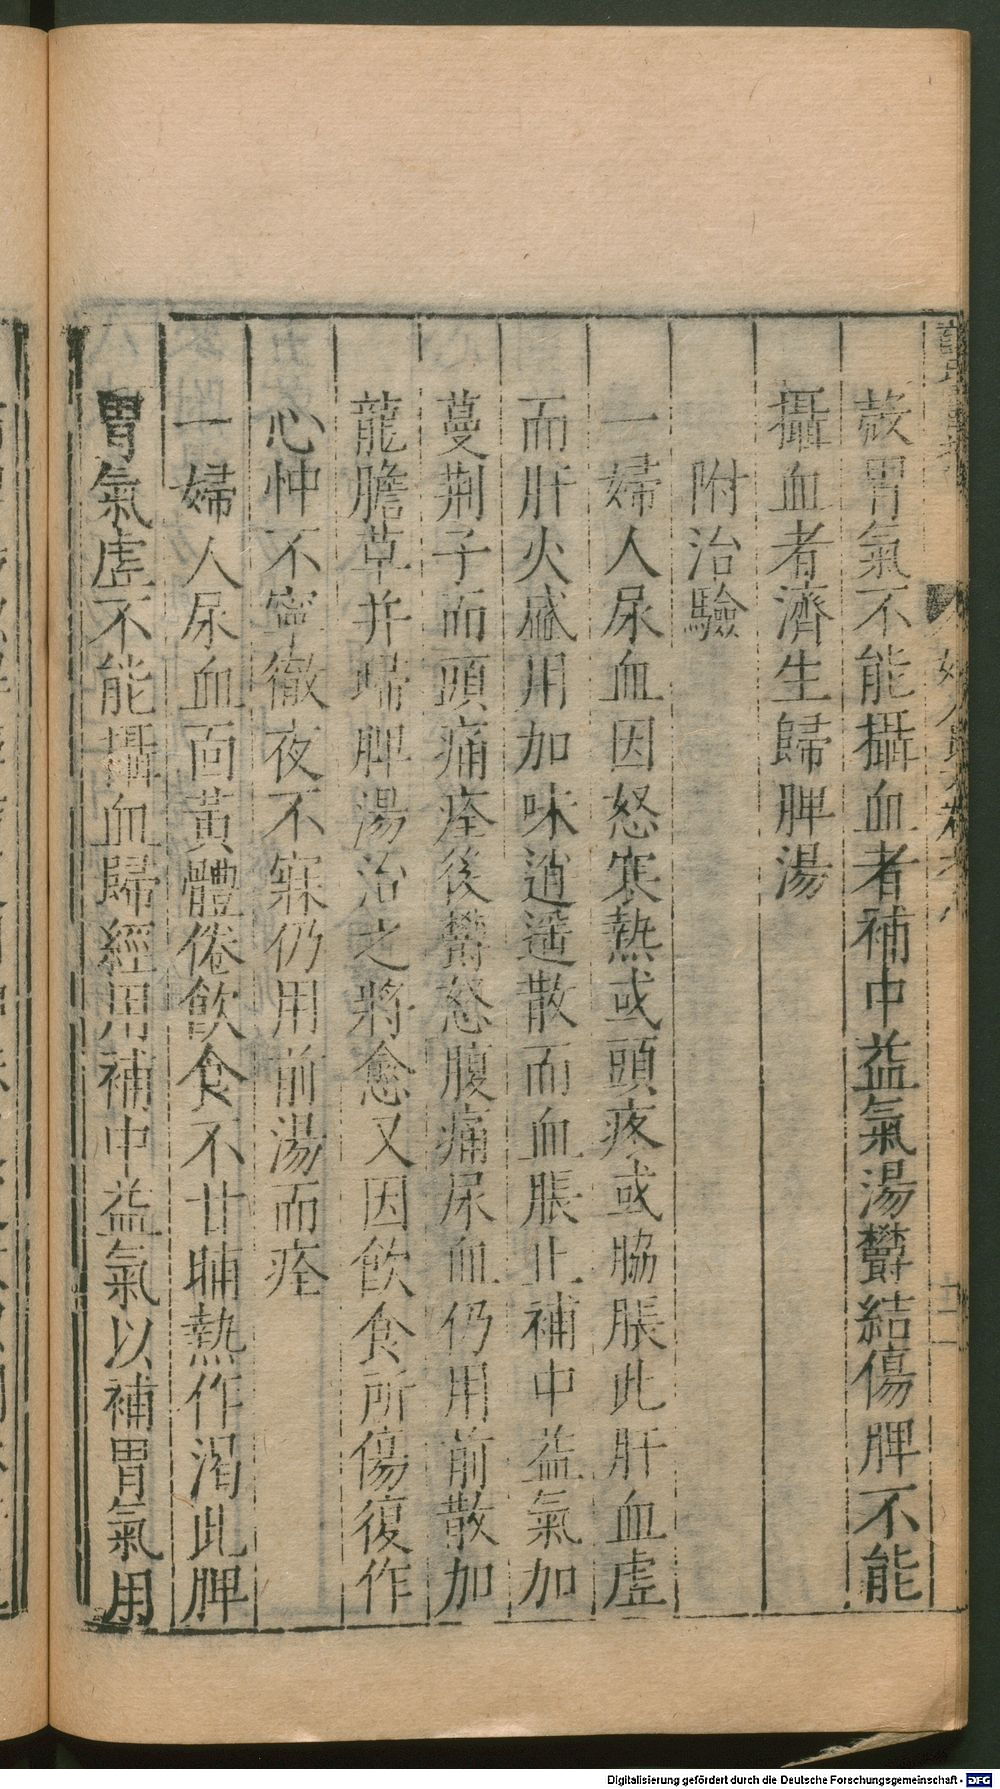 散胃氣不能攝血者補中益氣湯欝結傷脾不能
攝血者濟生歸脾湯
附治驗
一婦人尿血因怒寒熱或頭疼或脇脹此肝血虛
而肝火盛用加味逍遥散而血脹止補中益氣加
蔓荆子而頭痛痊後欝怒腹痛尿血仍用前散加
龍膽草并歸脾湯治之將愈又因飲食所傷復作
心忡不寧徹夜不寐仍用前湯而痊
一婦人尿血面黃體倦飲食不甘晡熱作渴此脾
胃氣虛不能攝血歸經用補中益氣以補胃氣用
Digitalisierung gefördert durch die Deutsche Forschungsgemeinschaft - DFG